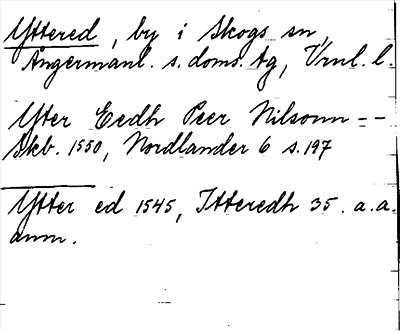 Yttered, by i Skogs sn,
Ångermanl. s. doms. tg, Vrnl. l.
Ytter Eedh Peer Nilsonn --
Skb. 1550, Nordlander 6 s. 197
Ytter ed 1545, Itteredh 35. a.a.
anm.